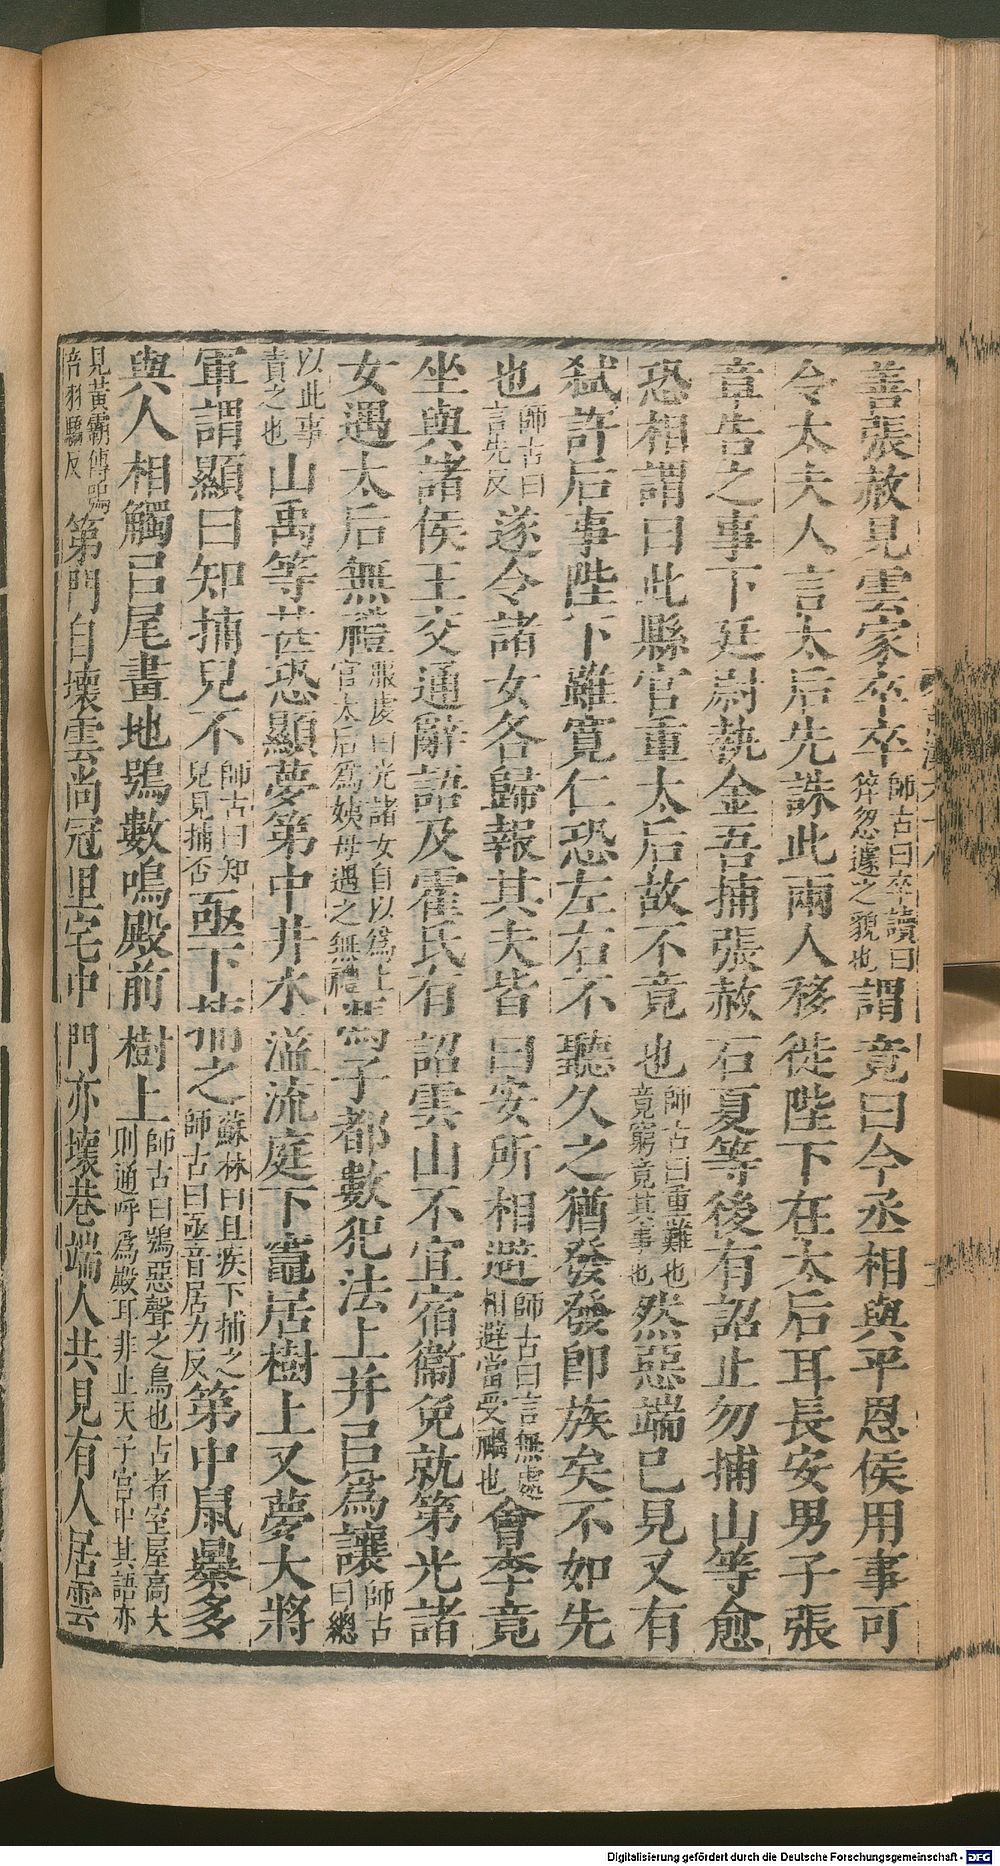 善張赦見雲家卒卒師古曰卒讀曰猝怱遽之貌也謂竟曰今丞相與平恩侯用事可
令太夫人言太后先誅此兩人移徙陛下在太后耳長安男子張
章告之事下廷尉執金吾捕張赦石夏等後有詔止勿捕山等愈
恐相謂曰此縣官重太后故不竟也師古曰重難也竟窮竟其事也然惡端已見又有
弑許后事陛下雖寬仁恐左右不聽久之猶發發卽族矣不如先
也師古曰言先反遂令諸女各歸報其夫皆曰安所相避師古曰言無處相避當受禍也會李竟
坐與諸侯王交通辭語及霍氏有詔雲山不宜宿衞免就第光諸
女遇太后無禮服虔曰光諸女自以爲上官太后爲姨母遇之無禮馮子都數犯法上并已爲讓師古曰總
以此事責之也山禹等甚恐顯夢第中井水溢流庭下竈居樹上又夢大將
軍謂顯曰知捕兒不師古曰知兒見捕否亟下捕之蘇林曰且疾下捕之師古曰亟音居力反第中鼠暴多
與人相觸已尾畫地鴞數鳴殿前樹上師古曰鴞惡聲之鳥也占者室屋高大則通呼爲殿耳非止天子宮中其語亦
見黃霸傳鴞音羽驕反第門自壞雲尚冠里宅中門亦壞巷端人共見有人居雲
Digitalisierung gefördert durch die Deutsche Forschungsgemeinschaft - DFG